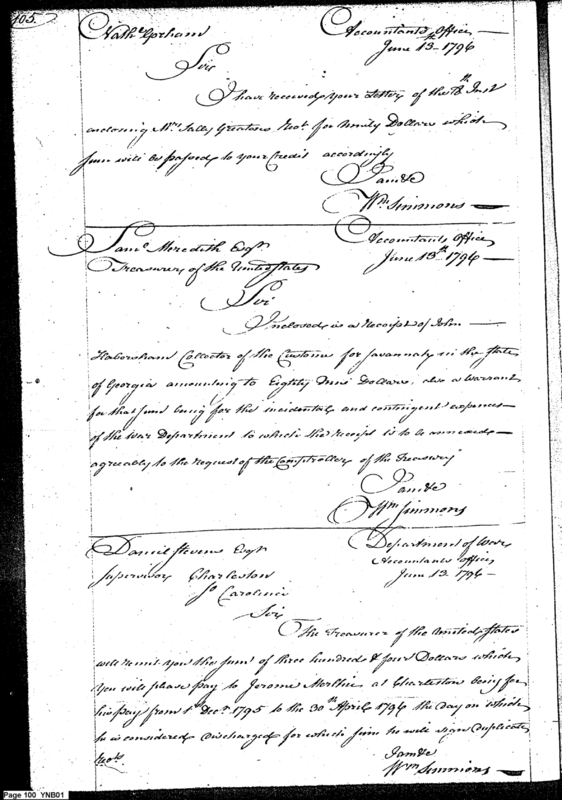 105.
Nathl Gorham Accountants Office
June 13th 1796
Sir
I have received your Letter of the 8th Inst
enclosing Mrs Sally Greatons Rect. for ninety Dollars which
sum will be passed to your Credit accordingly
I am &c
Wm Simmons
Saml Meredith Esqr Accountants Office
Treasurer of the United States June 13th 1796
Sir
Inclosed is a Receipt of John
Habersham Collector of the Customs for Savannah in the State
of Georgia amounting to Eighty Dollars, also a Warrant
for that sum being for the incidental and contingent expences
of the War Department to which the receipt is to be annexed
agreeably to the request of the Comptroller of the Treasury
I am &c
Wm Simmons
Daniel Stevens Esqr Department of War
Supervisor Charleston Accountants Office
So Carolina June 13 1796
Sir
The Treasurer of the United States
will remit you the sum of three hundred & four Dollars which
you will please pay to Jerome at Charleston being for
his pay from 1st Decr 1795 to the 30th April 1796 the day on which
he is considered discharged for which sum he will sign duplicate
Rects
I am &c
Wm Simmons
Page 100 YNB01